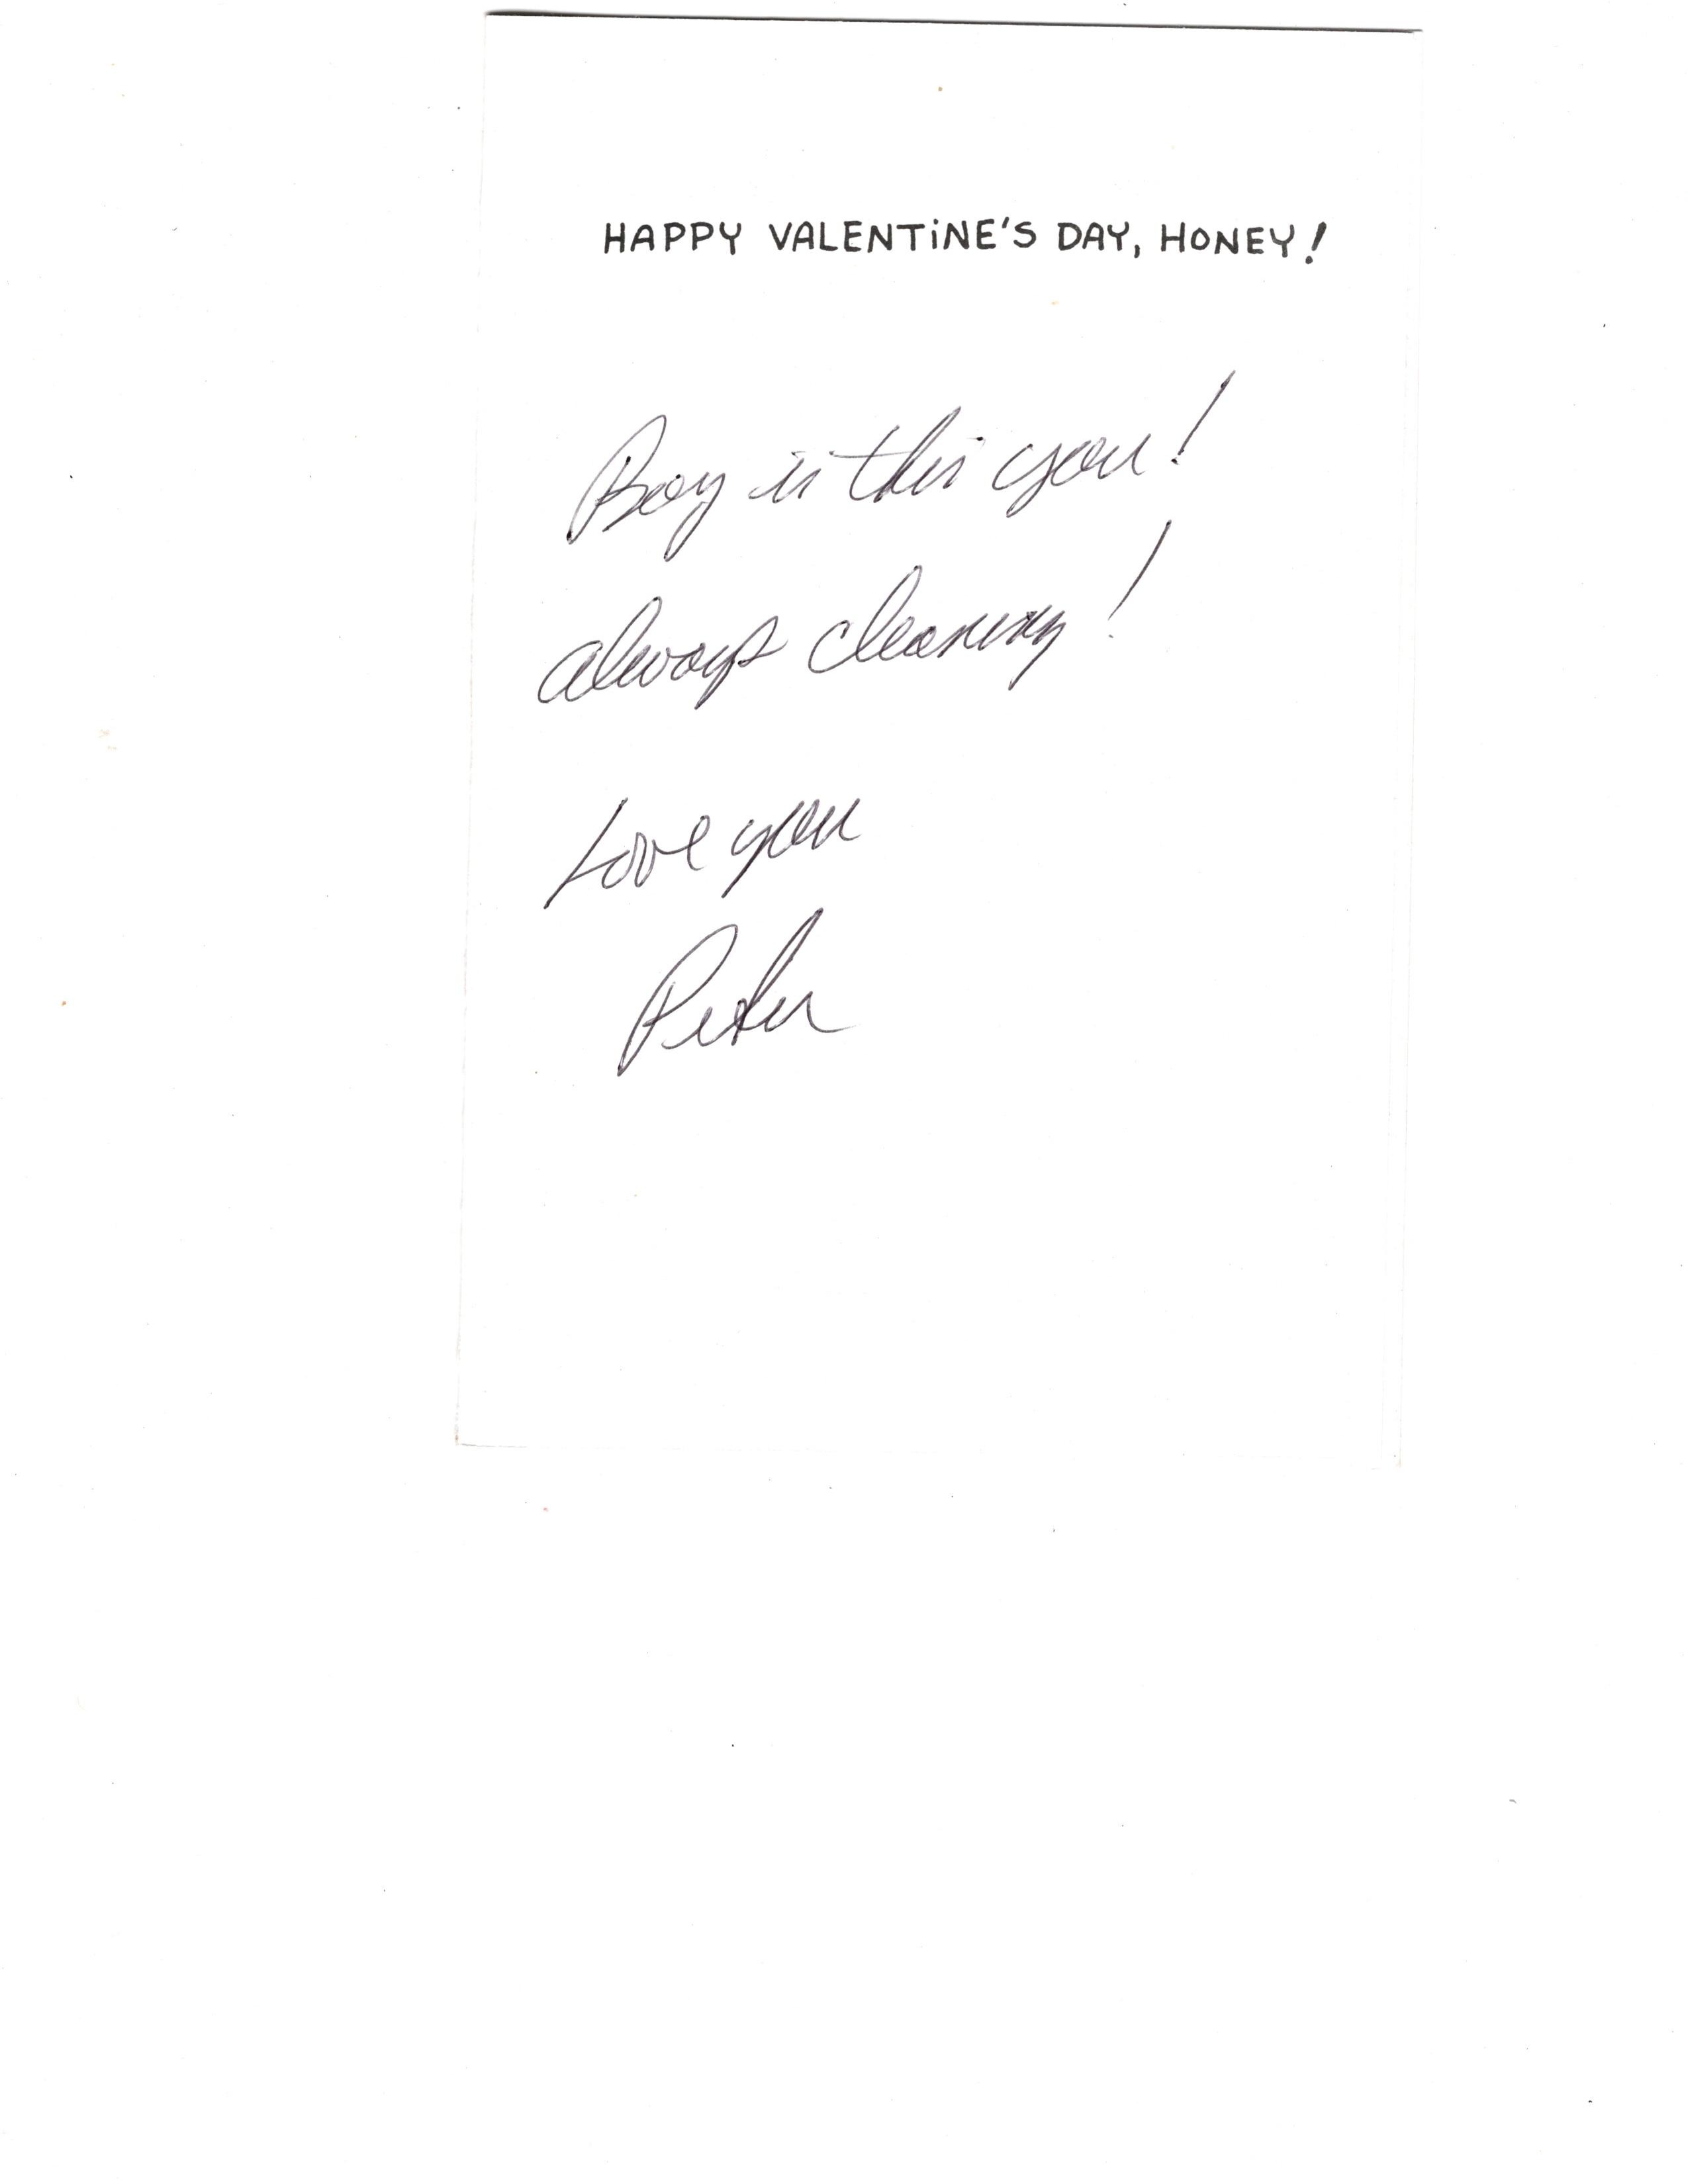 HAPPY VALENTINE'S DAY, HONEY!
Boy is this you!
always cleaning!
Love you
Peter